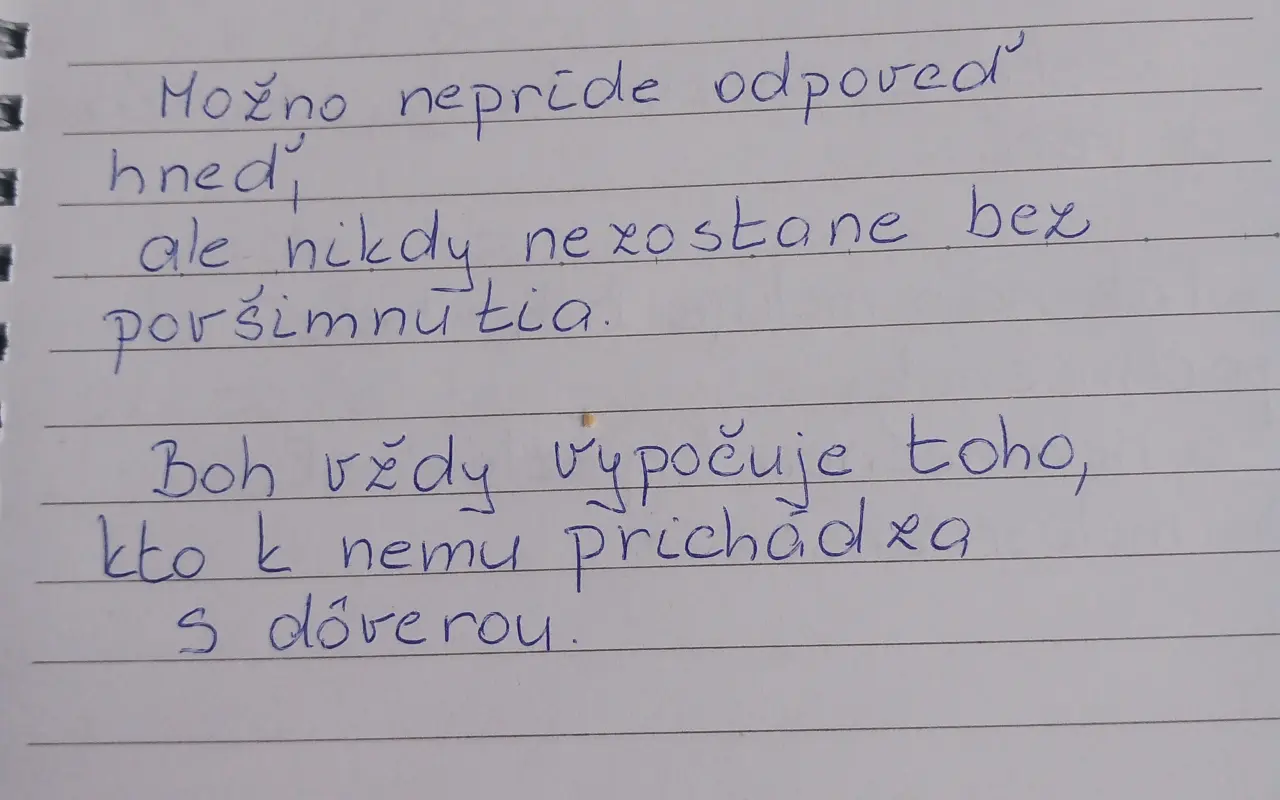 Možno nepríde odpoveď
hneď,
ale nikdy nezostane bez
povšimnutia.
Boh vždy vypočuje toho,
kto k nemu prichádza
s dôverou.